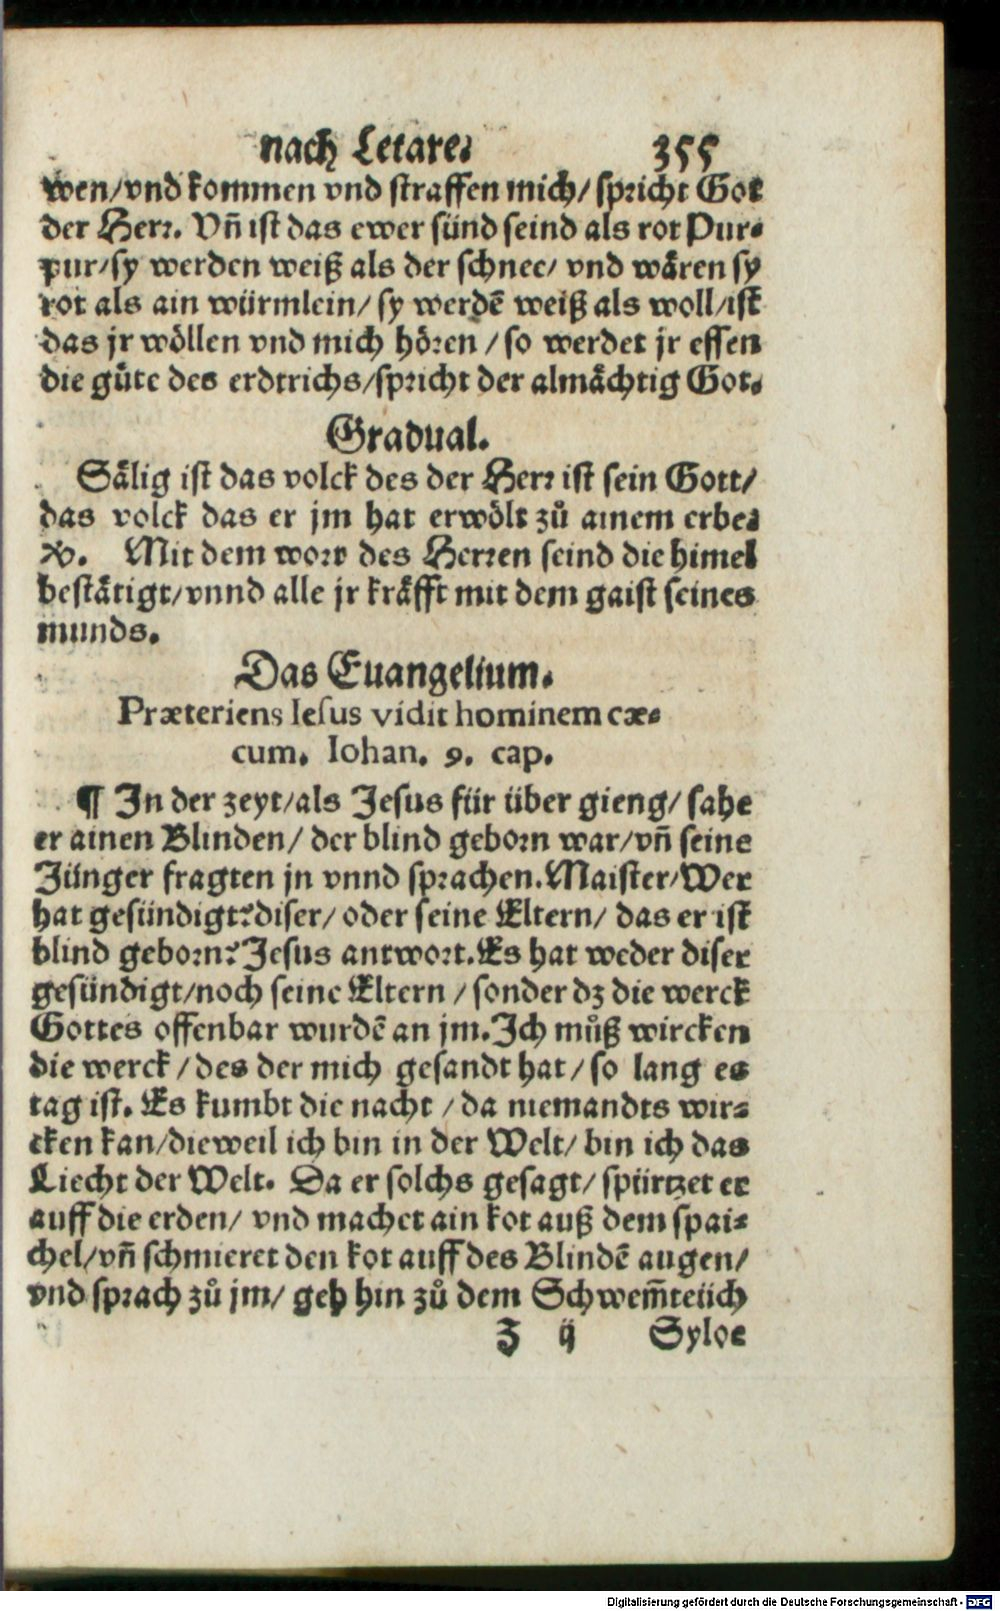 nach Letare. 355
wen/vnd kommen vnd straffen mich/ spricht Got
der Herr. Vñ ist das ewer sünd seind als rot Pur-
pur/sy werden weiß als der schnee/ vnd wåren sy
rot als ain würmlein/ sy werdē weiß als woll/ist
das jr wöllen vnd mich hören / so werdet jr essen
die gůte des erdtrichs/spricht der almåchtig Got.
Gradual.
Sålig ist das volck des der Herr ist sein Gott/
das volck das er jm hat erwölt zů ainem erbe.
℣. Mit dem wort des Herren seind die himel
beståtigt/vnnd alle jr kråfft mit dem gaist seines
munds.
Das Euangelium.
Præteriens Iesus vidit hominem cæ-
cum. Iohan. 9. cap.
¶ In der zeyt/als Jesus für über gieng/ sahe
er ainen Blinden/ der blind geborn war/vñ seine
Jünger fragten jn vnnd sprachen.Maister/Wer
hat gesündigt?diser/ oder seine Eltern/ das er ist
blind geborn? Jesus antwort.Es hat weder diser
gesündigt/noch seine Eltern / sonder dz die werck
Gottes offenbar wurdē an jm.Ich můß wircken
die werck / des der mich gesandt hat / so lang es
tag ist. Es kumbt die nacht / da niemandts wir-
cken kan/dieweil ich bin in der Welt/ bin ich das
Liecht der Welt. Da er solchs gesagt/ spürtzet er
auff die erden/ vnd machet ain kot auß dem spai-
chel/vñ schmieret den kot auff des Blindē augen/
vnd sprach zů jm/ geh hin zů dem Schwem̃teiich
Z ij Syloe
Digitalisierung gefördert durch die Deutsche Forschungsgemeinschaft - DFG